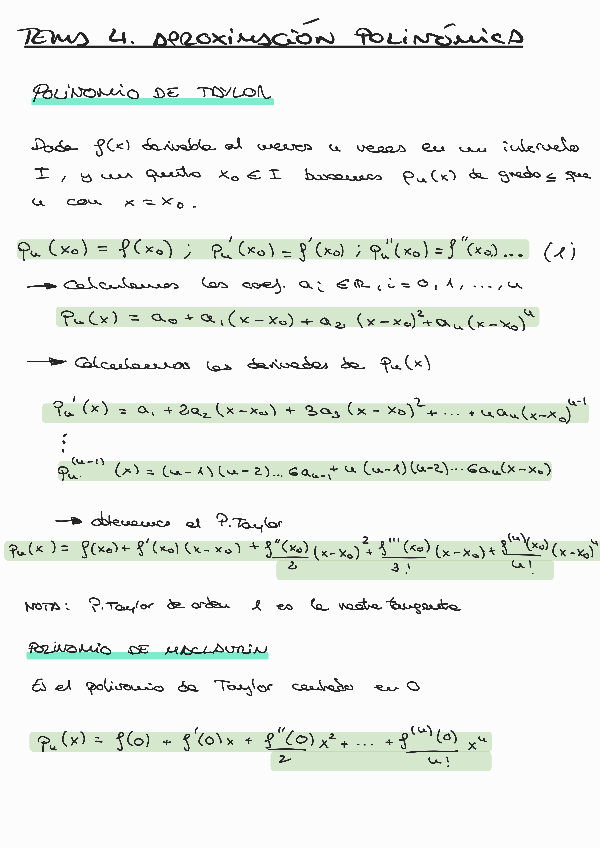 TEMA 4. APROXIMACIÓN POLINÓMICA
POLINOMIO DE TAYLOR
Dada f(x) derivable al menos n veces en un intervalo
I, y un punto x₀ ∈ I buscamos pₙ(x) de grado ≤ que
n con x = x₀.
pₙ(x₀) = f(x₀) ; pₙ'(x₀) = f'(x₀) ; pₙ''(x₀) = f''(x₀)... (1)
→ Calculamos los coef. aᵢ ∈ ℝ, i = 0, 1, ..., n
pₙ(x) = a₀ + a₁(x-x₀) + a₂ (x-x₀)² + aₙ(x-x₀)ⁿ
→ Calculamos las derivadas de pₙ(x)
pₙ'(x) = a₁ + 2a₂(x-x₀) + 3a₃(x-x₀)² + ... + naₙ(x-x₀)ⁿ⁻¹
⋮
pₙ⁽ⁿ⁻¹⁾(x) = (n-1)(n-2)... 6aₙ₋₁ + n(n-1)(n-2)... 6aₙ(x-x₀)
→ obtenemos el P.Taylor
pₙ(x) = f(x₀) + f'(x₀)(x-x₀) + f''(x₀)/2 (x-x₀)² + f'''(x₀)/3! (x-x₀) + f⁽ⁿ⁾(x₀)/n! (x-x₀)ⁿ
NOTA: P.Taylor de orden 1 es la recta tangente
POLINOMIO DE MACLAURIN
Es el polinomio de Taylor centrado en 0
pₙ(x) = f(0) + f'(0)x + f''(0)/2 x² + ... + f⁽ⁿ⁾(0)/n! xⁿ